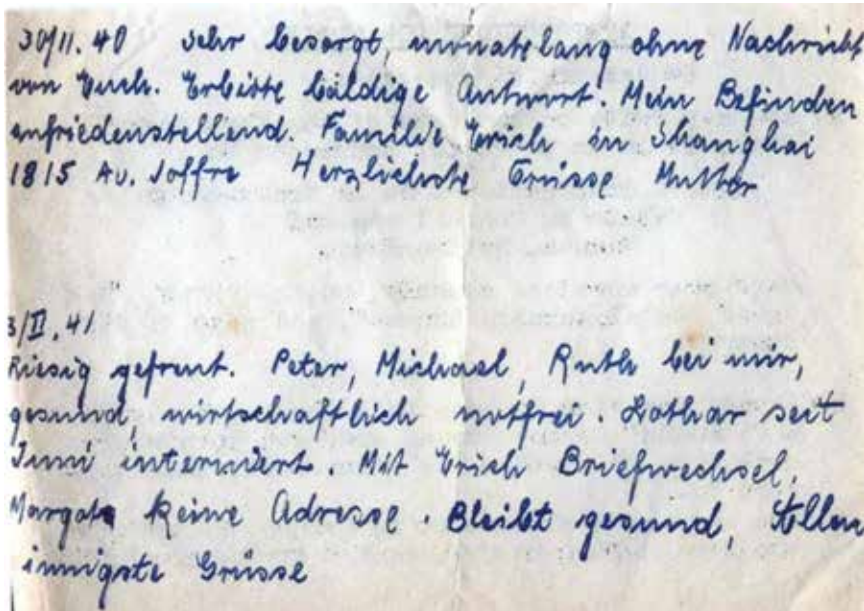 30/11. 40 Sehr besorgt, monatelang ohne Nachricht
von Euch. Erbitte baldige Antwort. Mein Befinden
zufriedenstellend. Familie Erich in Shanghai
1815 Av. Joffre Herzlichste Grüsse Mutter
3/II. 41
Riesig gefreut. Peter, Michael, Ruth bei mir,
gesund, wirtschaftlich notfrei. Lothar seit
Juni interniert. Mit Erich Briefwechsel.
Margots keine Adresse. Bleibt gesund, Allen
innigste Grüsse